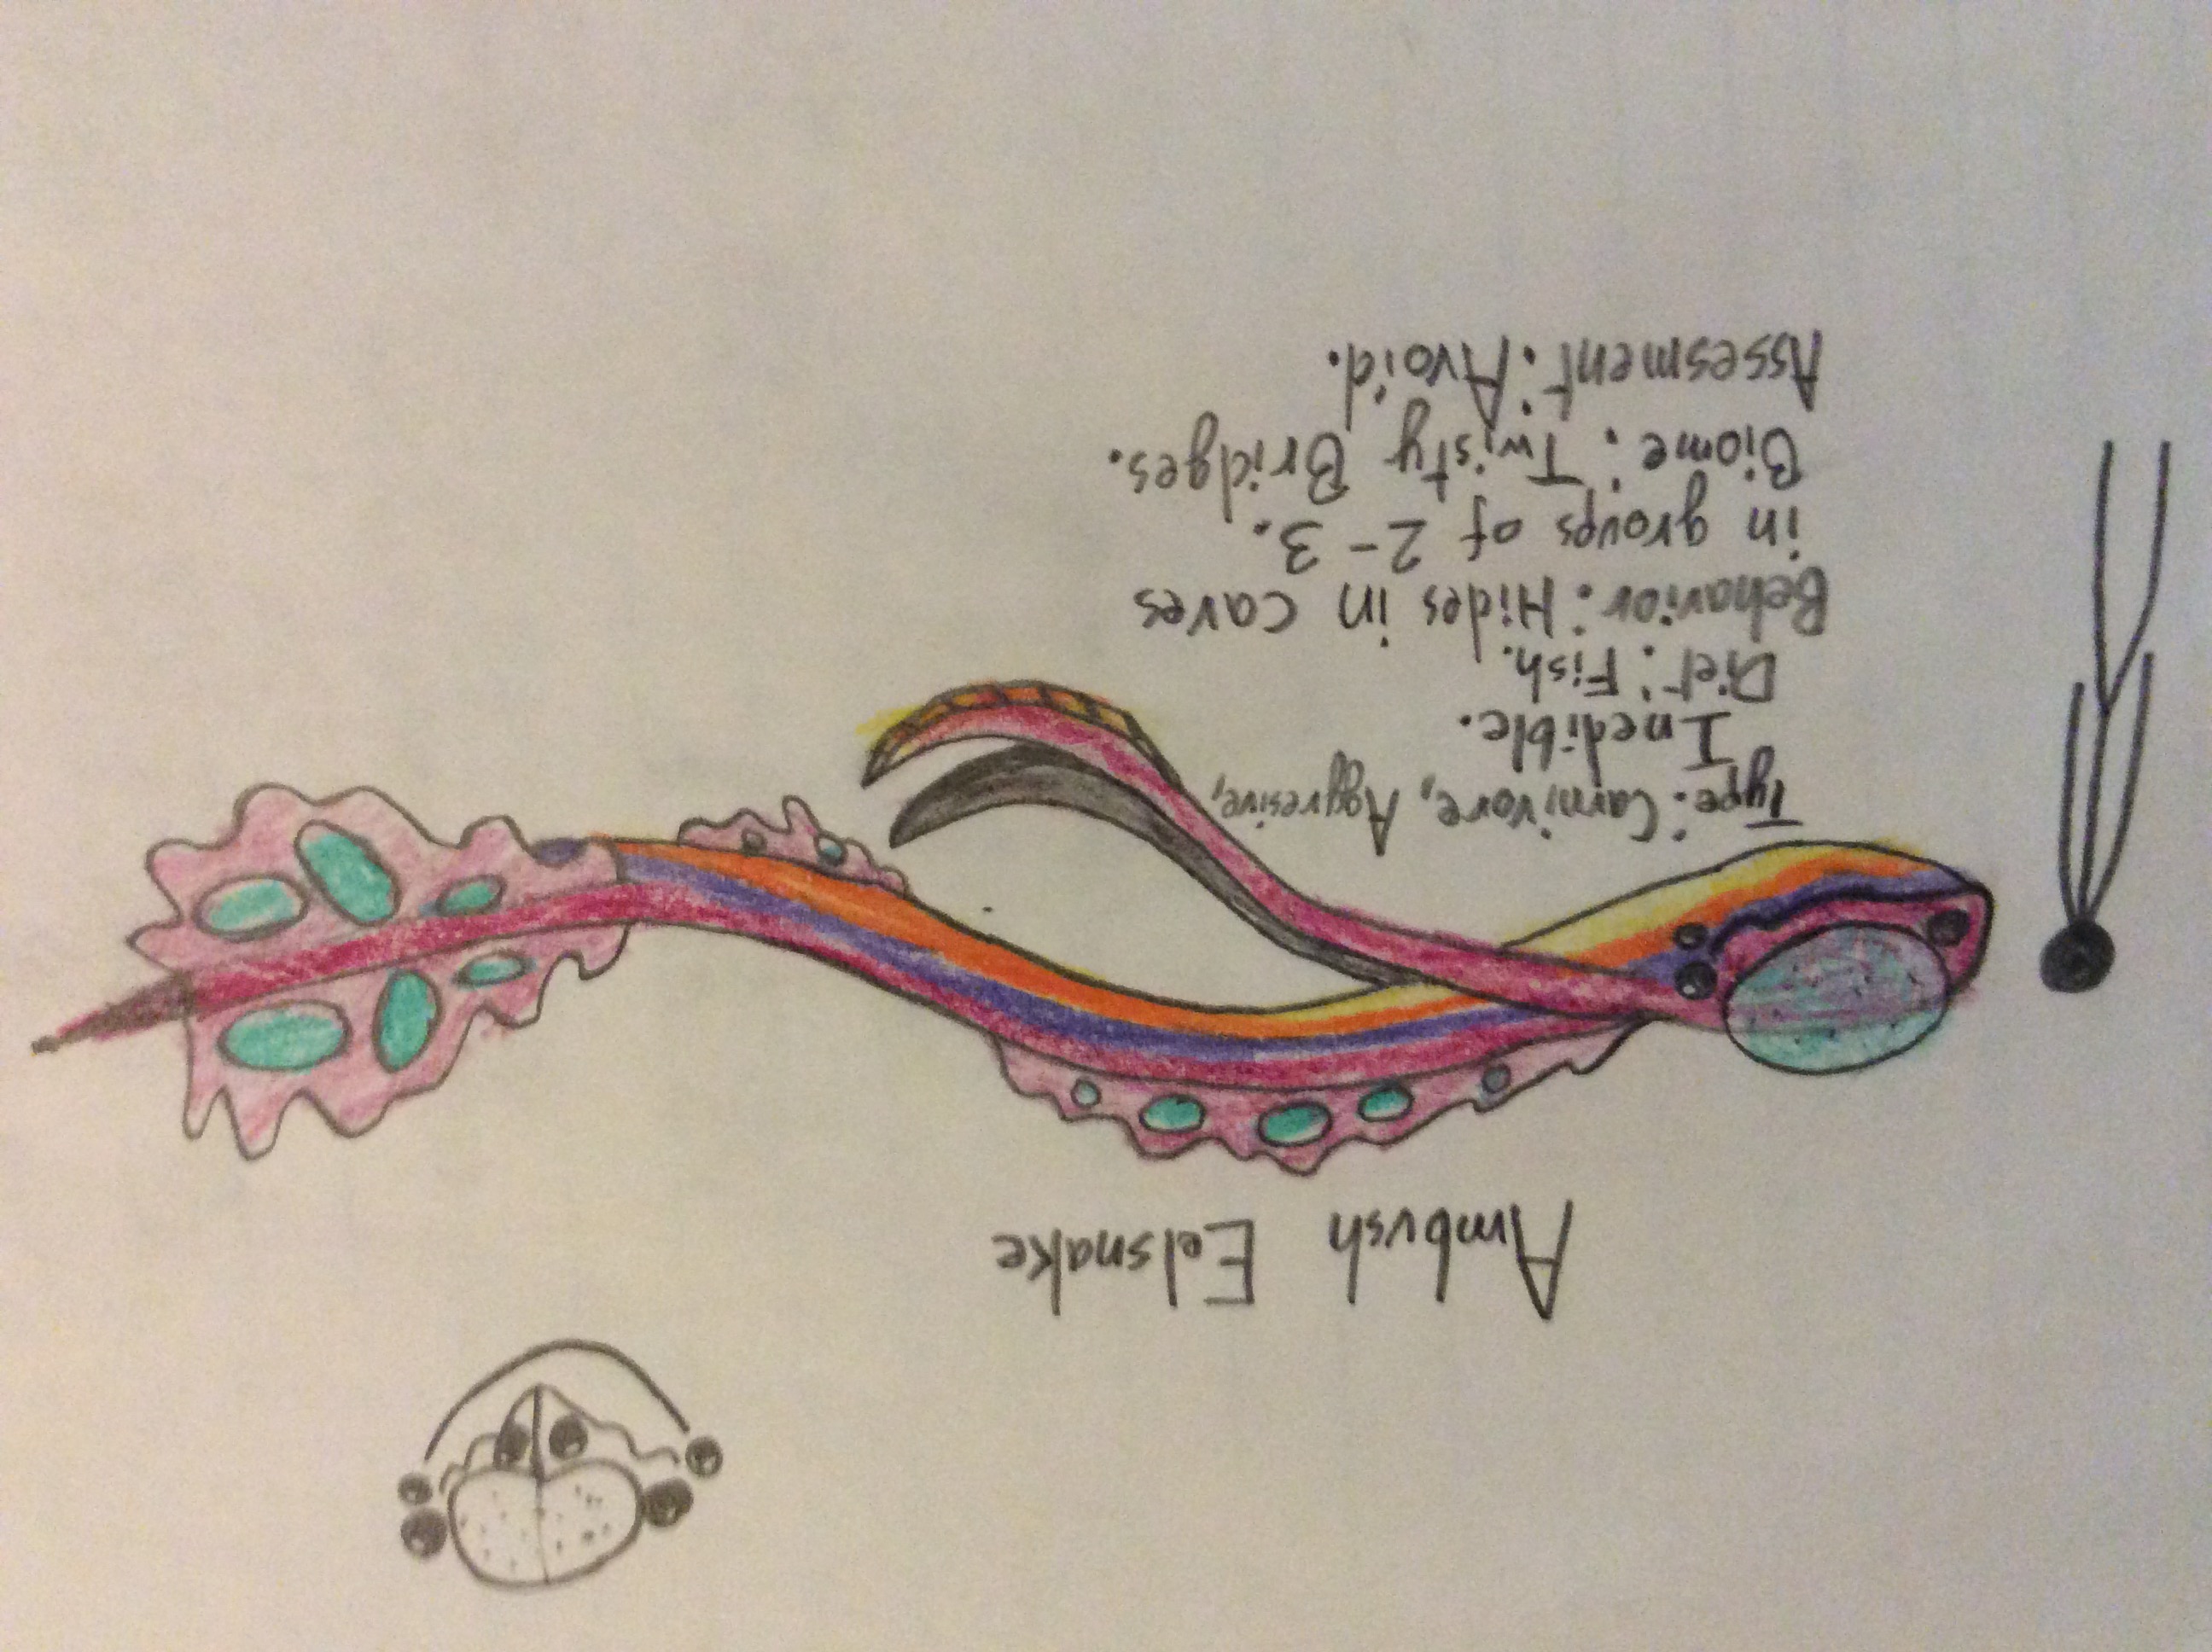 Ambush Eelsnake
Type: Carnivore, Aggresive,
Inedible.
Diet: Fish.
Behavior: Hides in caves
in groups of 2-3.
Biome: Twisty Bridges.
Assesment: Avoid.